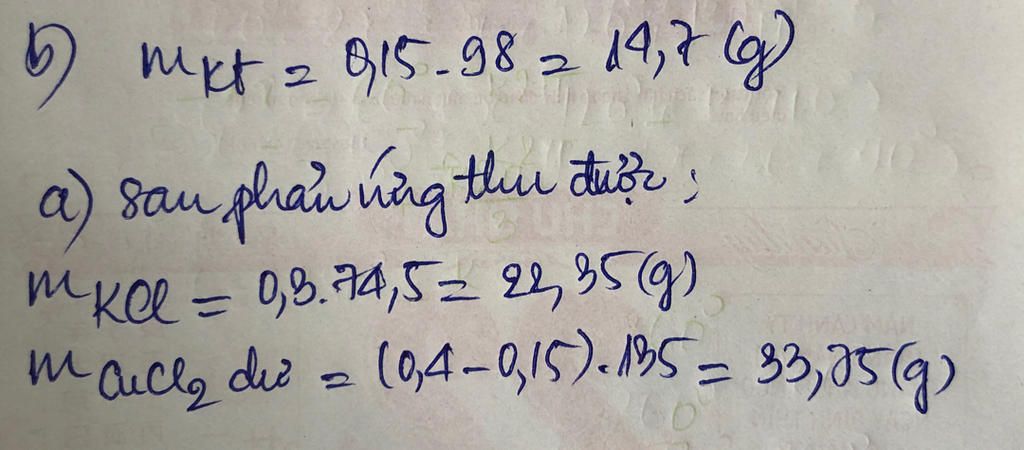 b) mKt = 0,15.98 = 14,7 (g)
a) sau phản ứng thu được:
mKCl = 0,3.74,5 = 22,35(g)
mCuCl2 dư = (0,4-0,15).135 = 33,75(g)